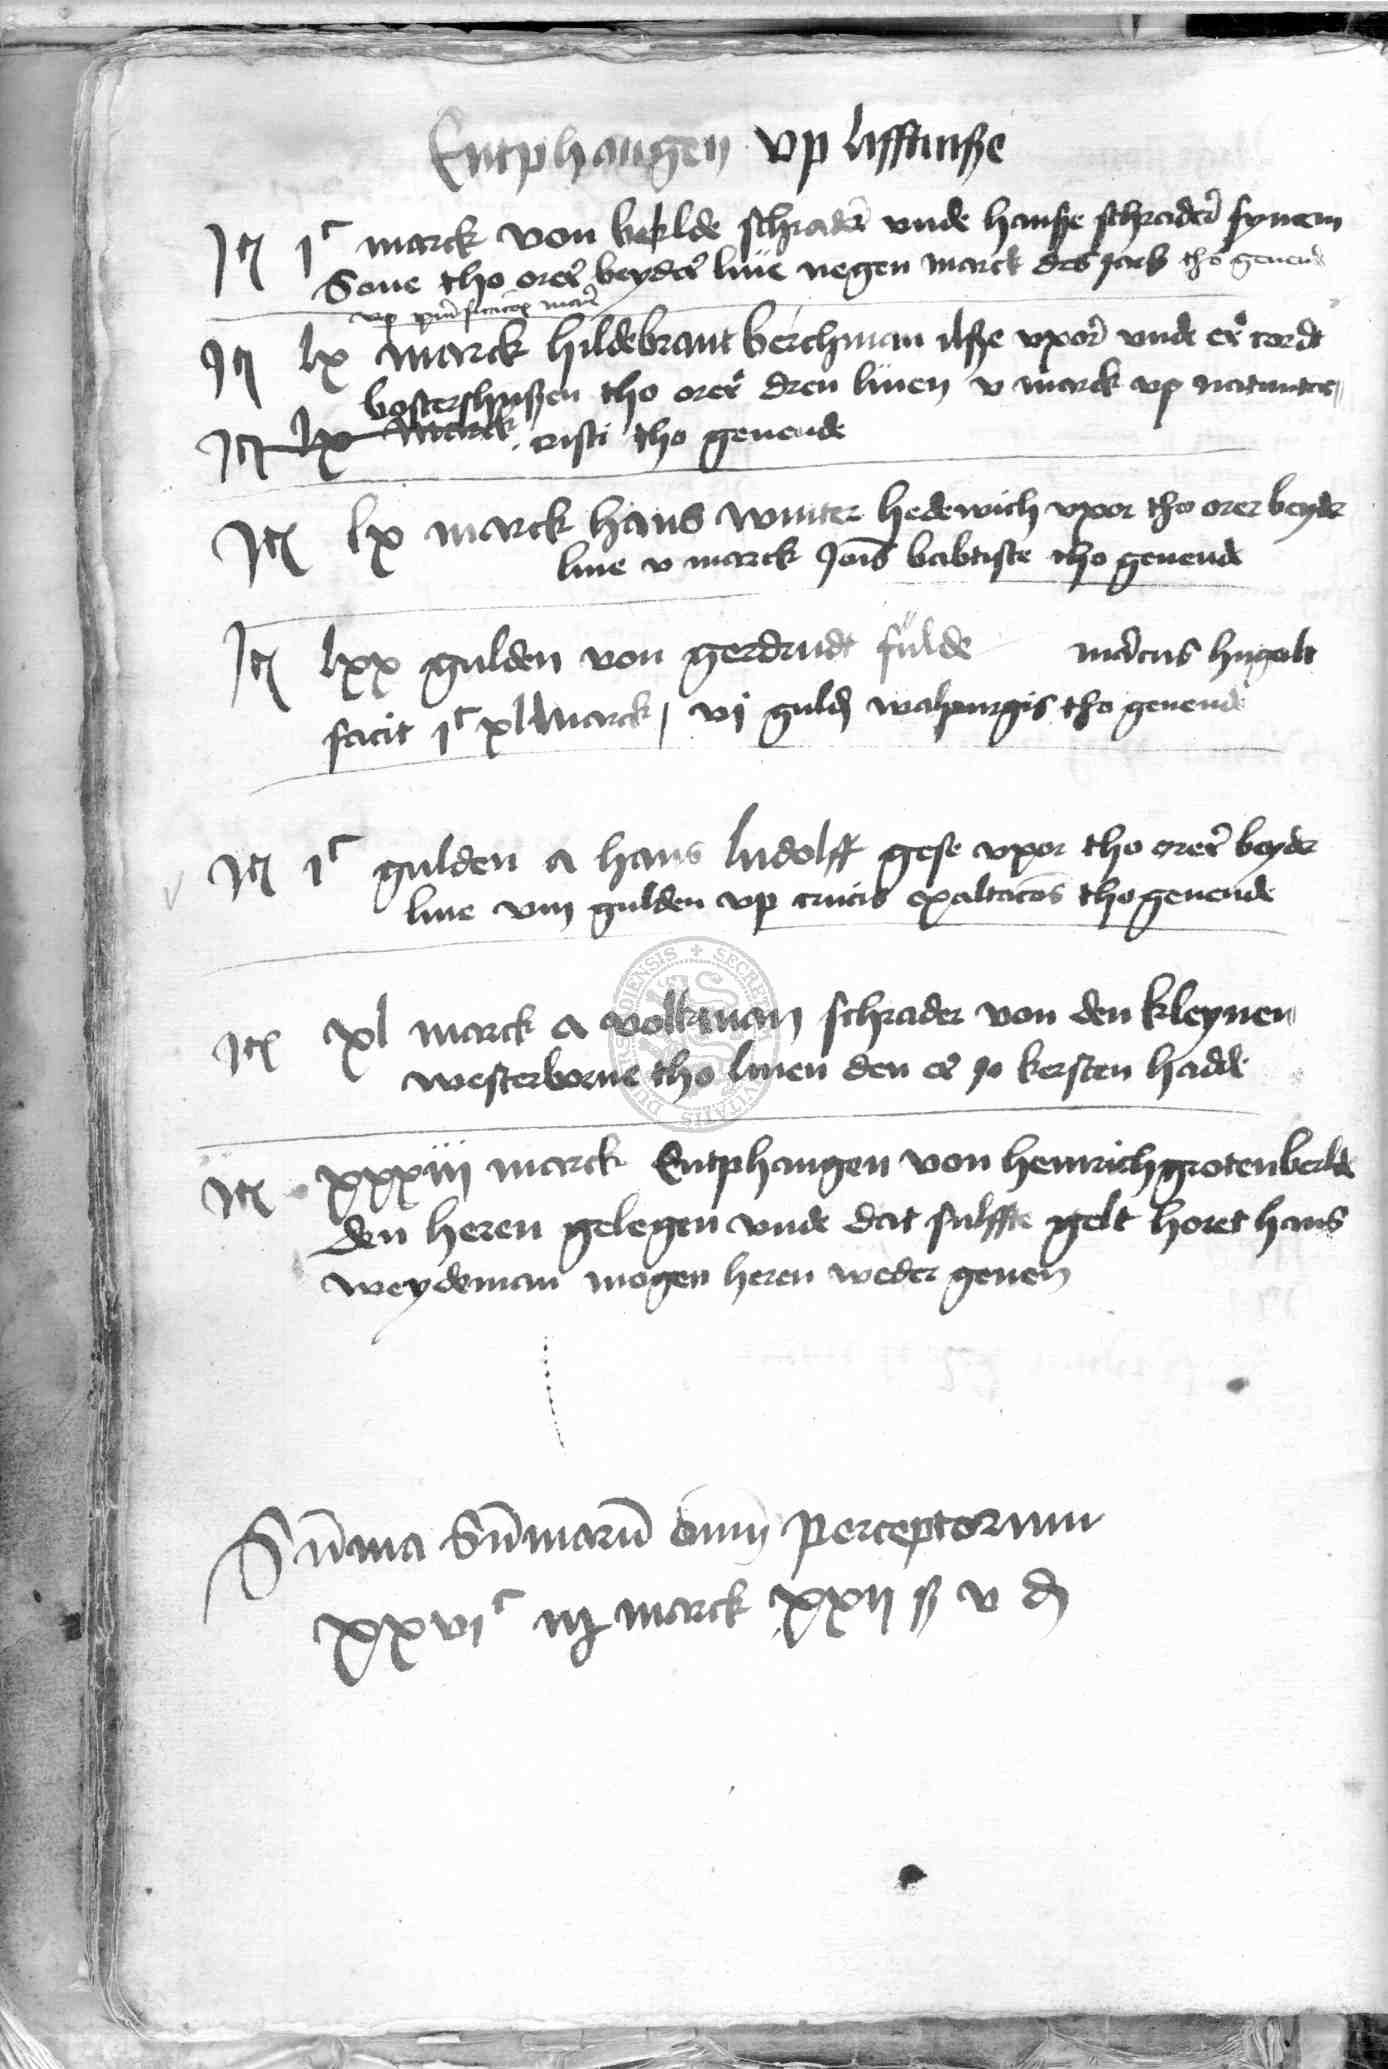 Entphangen vp lifftuchße
Itē jᶜ marck von beelde schrader̄ vnde hanße schrader̄ synem
Sone tho orer̄ beyder̄ liue negen marck des jars tho geuend
vp purificacioē marie
Itē lx marck hildebrant berchman ilße vxor̄ vnde er̄ cordt
bostershußen tho orer̄ dren liuen v marck vp natiuitat
Itē lx marck cristi tho geuende
Itē lx marck hans winter hedewich vxor tho orer beyder
liue v marck Joīs babtiste tho geuende
Itē lxx gulden von gerdrudt fulde marcus hugolt
facit jᶜ xl marck / vj guldē walpurgis tho geuende
Itē jᶜ gulden a hans ludolff gese vxor tho orer̄ beyder
liue viij gulden vp crucis exaltacōis tho geuende
Itē xl marck a volkman schrader von den kleynen
westerborne tho liuen den er jo kersten hadde
Itē xxxiij marck Entphangen von heinrich grotenberlde
den heren gelegen vnde dat sulffte gelt horet hans
weydeman mogen heren weder geuen
Sūma Sūmarū omī perceptorum
xxvjᶜ iij marck xxij ß v ₰